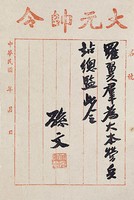 大元帥令
羅翼羣為大本營兵
站總監此令
孫文
中華民國 年 月 日